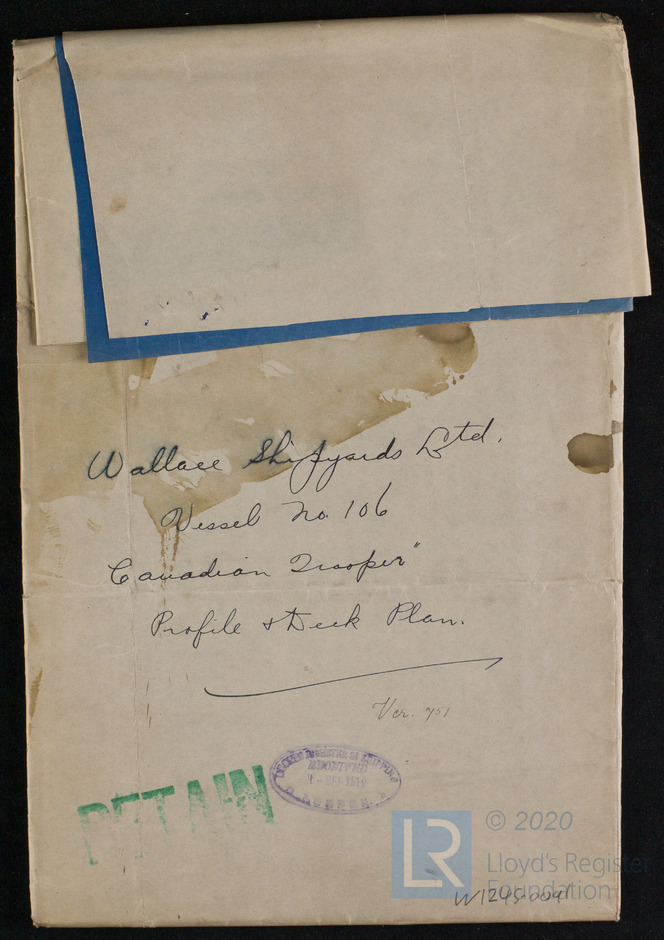 Wallace Shipyards Ltd.
Vessel No. 106
Canadian Trooper"
Profile & Deck Plan.
Ver. 751
RETAIN
LLOYD'S REGISTER OF SHIPPING
LR
© 2020
Lloyd's Register
Foundation
W1245-0091